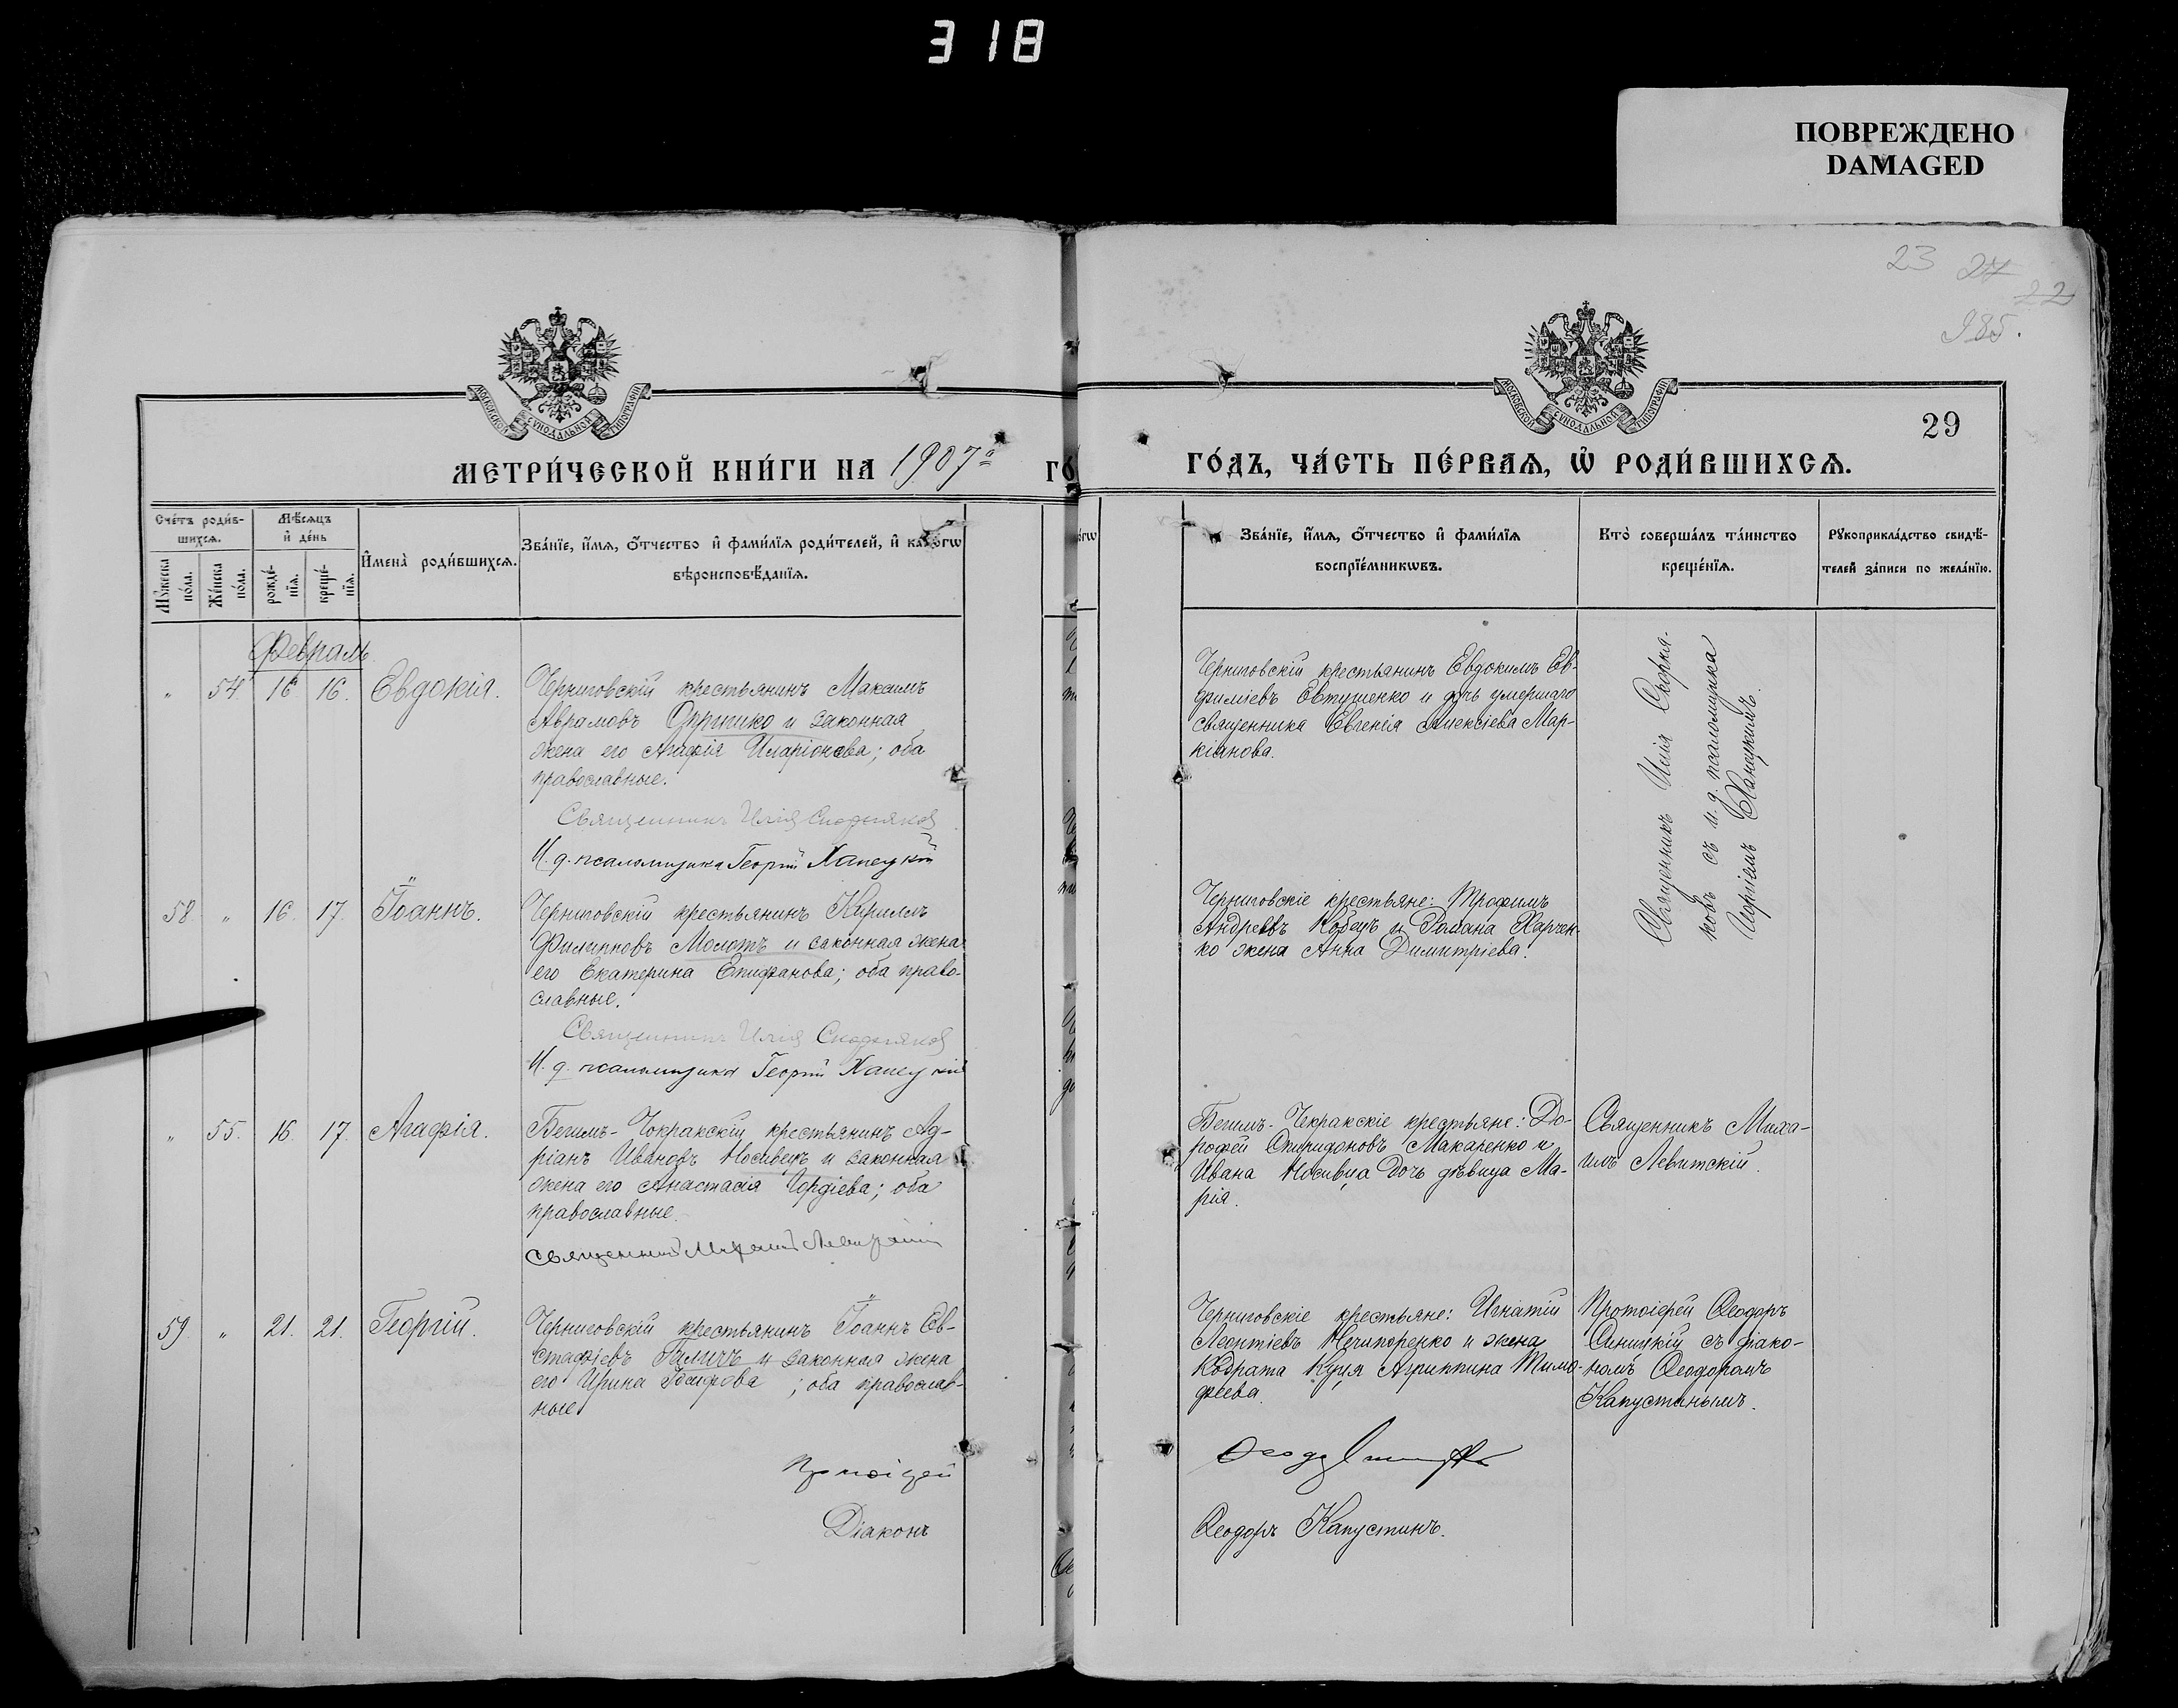 318
ПОВРЕЖДЕНО
DAMAGED
23 27
22
985.
МОСКОВСКОЙ СѴНОДАЛЬНОЙ ТИПОГРАФІИ
МОСКОВСКОЙ СѴНОДАЛЬНОЙ ТИПОГРАФІИ
29
МЕТРИ́ЧЕСКОЙ КНИ́ГИ НА 1907 ГО́
ГО́ДЪ, ЧА́СТЬ ПЕ́РВАѦ, Ѽ РОДИ́ВШИХСѦ.
Сче́тъ роди́в-
шихсѧ.
Мꙋ́жеска по́ла.
Же́нска по́ла.
Мѣ́сѧцъ
и҆ де́нь
рожде́-
нїѧ.
креще́-
нїѧ.
И҆мена̀ роди́вшихсѧ.
Зва́нїе, и҆́мѧ, ѻ҆́тчество и҆ фами́лїѧ роди́телей, и҆ како́гѡ
вѣроисповѣ́данїѧ.
Зва́нїе, и҆́мѧ, ѻ҆́тчество и҆ фами́лїѧ
воспрїе́мникѡвъ.
Кто̀ соверша́лъ та́инство
креще́нїѧ.
Рꙋкоприкла́дство свидѣ́-
телей за́писи по жела́нїю.
Февраль
" 54. 16 16. Евдокія.
Черниговскій крестьянинъ Максимъ
Аврамовъ и законная
жена его Агафія Иларіонова; оба
православные.
Священникъ Илія Скорняковъ
И. д. псаломщика Георгій Ханецкій
Черниговскій крестьянинъ Евдокимъ Ев-
фиміевъ Евтушенко и дочь умершаго
священника Евгенія Алексіева Мар-
кіанова.
Священникъ Илія Скорня-
ковъ съ и. д. псаломщика
Георгіемъ Ханецкимъ.
58. " 16. 17. Іоаннъ.
Черниговскій крестьянинъ Кириллъ
Филипповъ Молотъ и законная жена
его Екатерина Епифанова; оба право-
славные.
Священникъ Илія Скорняковъ
И. д. псаломщика Георгій Ханецкій
Черниговскіе крестьяне: Трофимъ
Андреевъ Кобецъ и Романа Харчен-
ко жена Анна Димитріева.
" 55. 16. 17. Агафія.
Бегимъ-Чокракскій крестьянинъ Ад-
ріанъ Ивановъ Носивецъ и законная
жена его Анастасія Гордіева; оба
православные.
Священникъ Михаилъ Левитскій
Бегимъ-Чекракскіе крестьяне: До-
рофей Спиридоновъ Макаренко и
Ивана Носивца дочь дѣвица Ма-
рія.
Священникъ Миха-
илъ Левитскій.
59. " 21. 21. Георгій.
Черниговскій крестьянинъ Іоаннъ Ев-
стафіевъ Галичъ и законная жена
его Ирина Іосифова ; оба православ-
ные
Протоіерей
Діаконъ
Черниговскіе крестьяне: Игнатій
Леонтіевъ Нечипоренко и жена
Кодрата Куця Агриппина Тимо-
феева.
Протоіерей Ѳеодоръ
Синицкій съ діако-
номъ Ѳеодоромъ
Капустинымъ.
Ѳеодоръ Капустинъ.